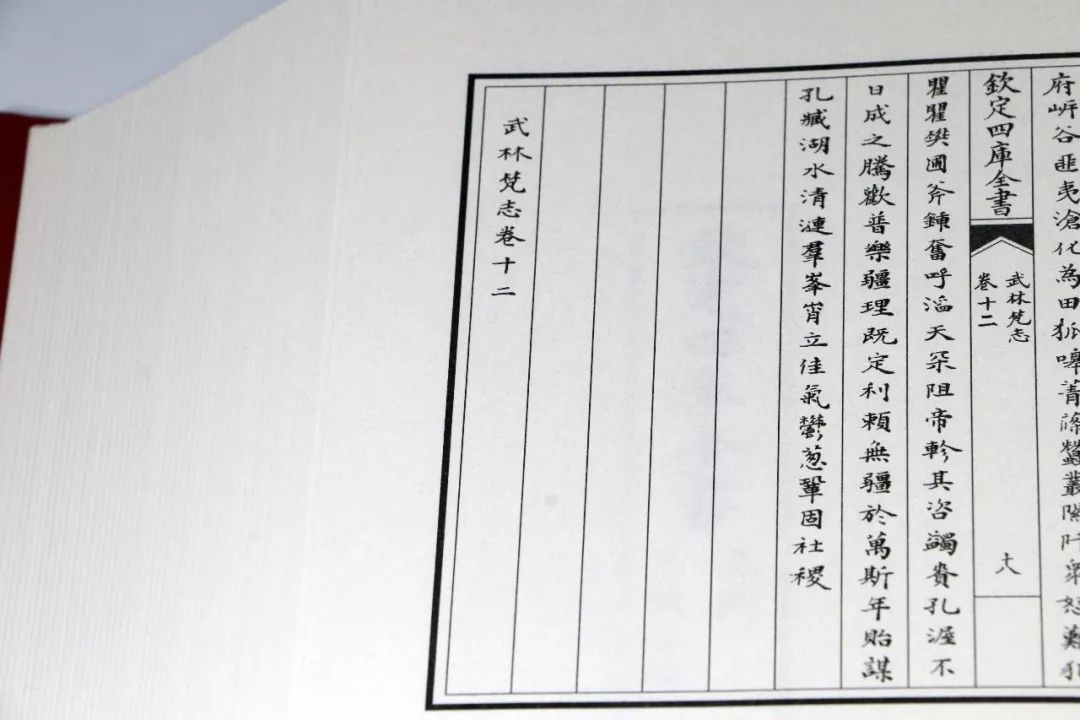 府岍谷匪夷滄化為田狐嘷
欽定四庫全書
武林梵志
卷十二
瞿瞿樊圃斧鍤奮呼滔天罙阻帝軫其咨蠲賚孔渥不
日成之騰歡普樂疆理既定利賴無疆於萬斯年貽謀
孔臧湖水清漣羣峯宵立佳氣鬱葱鞏固社稷
武林梵志卷十二